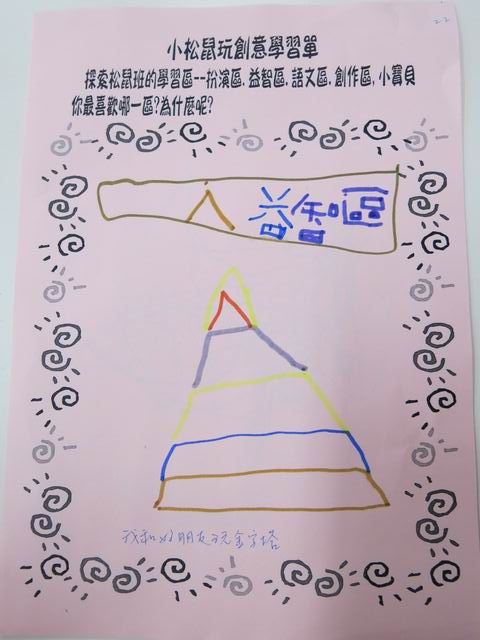 22
小松鼠玩創意學習單
探索松鼠班的學習區--扮演區.益智區.語文區.創作區,小寶貝
你最喜歡哪一區?為什麼呢?
益智區
我和好朋友玩金字塔